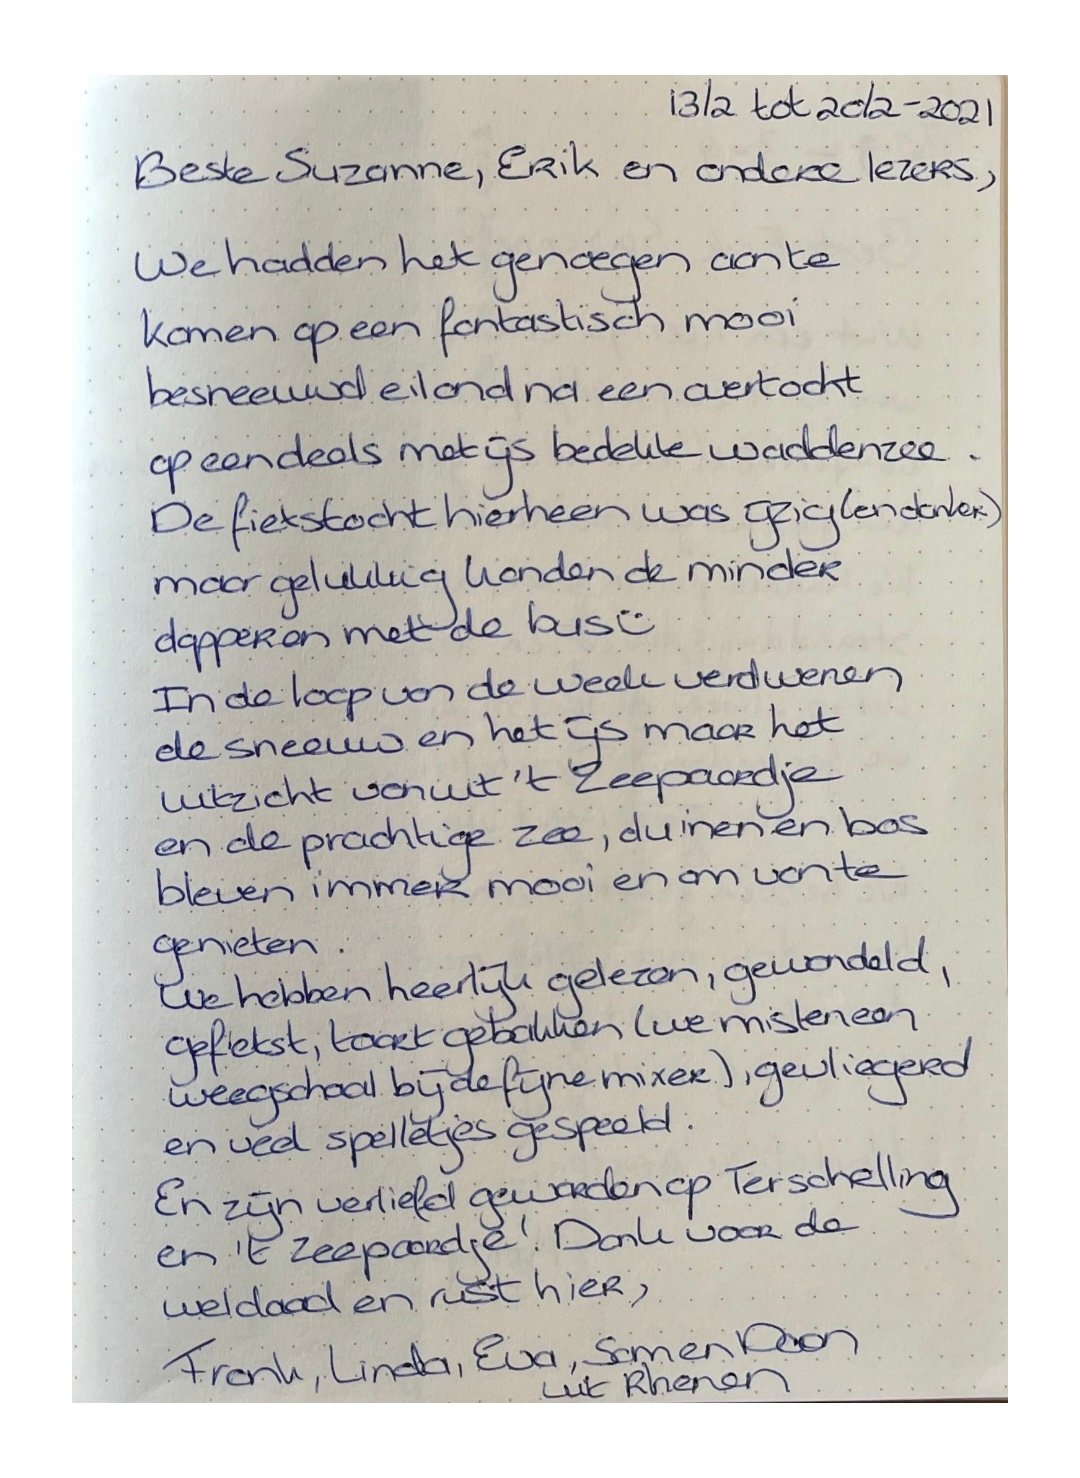 13/2 tot 20/2-2021
Beste Suzanne, Erik en andere lezers,
We hadden het genoegen aan te
komen op een fantastisch mooi
besneeuwd eiland na een overtocht
op een deels met ijs bedekte waddenzee.
De fietstocht hierheen was ijzig (en donker)
maar gelukkig konden de minder
dapperen met de bus ü
In de loop van de week verdwenen
de sneeuw en het ijs maar het
uitzicht vanuit 't Zeepaardje
en de prachtige zee, duinen en bos
bleven immer mooi en om van te
genieten.
We hebben heerlijk gelezen, gewandeld,
gefietst, taart gebakken (we misten een
weegschaal bij de fijne mixer), gevliegerd
en veel spelletjes gespeeld.
En zijn verliefd geworden op Terschelling
en 't Zeepaardje! Dank voor de
weldaad en rust hier,
Frank, Linda, Eva, Sam en Daan
uit Rhenen